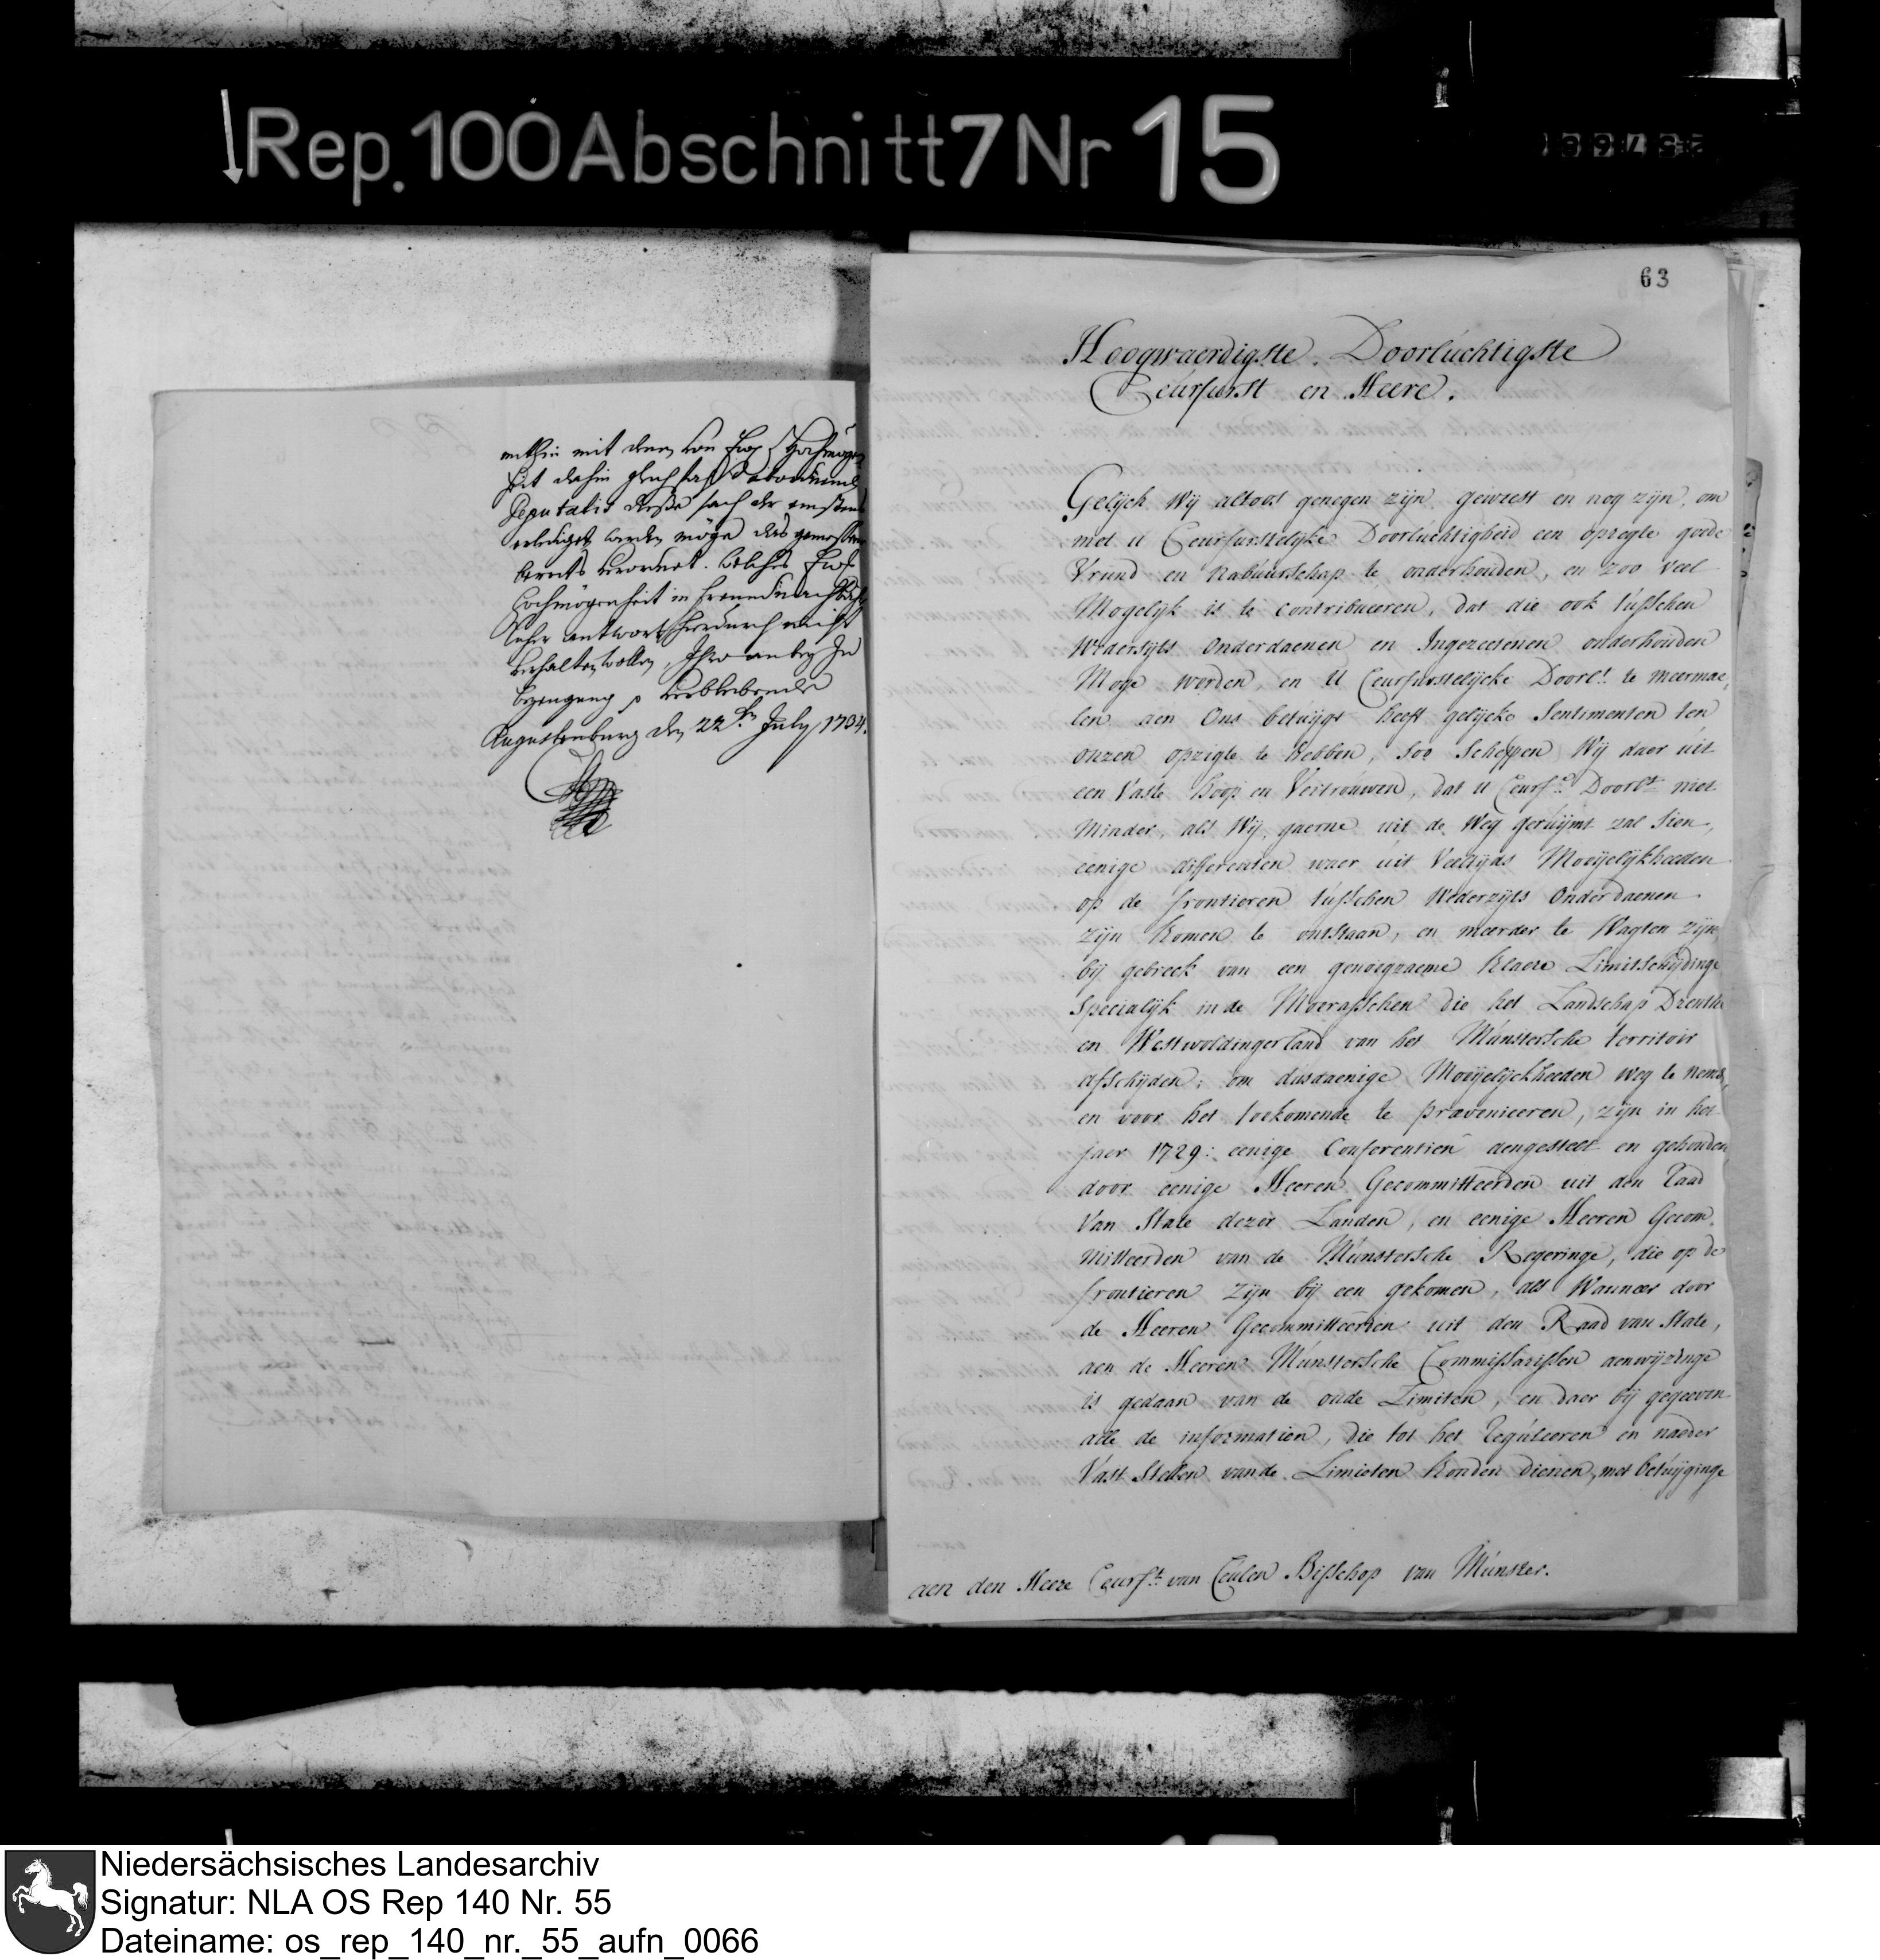 Rep. 100 Abschnitt 7 Nr 15
mithin mit denen von Ew. Hochmögen
heit dahin gleichfals
Deputatis diese sach der
erlediget werden möge das
bereits verordnet. Welches Ew.
Hochmögenheit in freundnachbahr
licher antwort hierdurch nicht
verhalten wollen, Ihro anbey zu
bezeugung verbleibende
Augustusburg den 22ten July 1734.
63
Hoogwaerdigste Doorluchtigste
Ceurfurst en Heere.
Gelijck Wij altoos genegen zijn geweest en nog zijn, om
met U Ceurfurstelijke Doorluchtigheid een opregte goede
Vrund en Nabuurschap te onderhouden, en zoo veel
Mogelijk is te contribueeren, dat die ook tusschen
Wedersijts Onderdaenen en Ingezeetenen onderhouden
Moge werden, en U Ceurfurstelijcke Doorlt. te meermae
len aen Ons betuijgt heeft gelijcke Sentimenten ten
onzen opzigte te hebben, Soo Scheppen Wij daer uit
een Vaste Hoop en Vertrouwen, dat U Ceurfe. Doorlt. niet
Minder, als Wij, gaerne uit de Weg geruijmt zal Sien,
eenige differenten waer uit Veeltijds Moeijelijkheeden
op de frontieren tusschen Wederzijts Onderdaenen
zijn komen te ontstaan, en meerder te Wagten zijn,
bij gebreek van een genoegzaeme klaere Limitscheijdinge
Specialijk in de Moerasschen die het Landschap Drenthe
en Westwoldingerland van het Munstersche territoir
afscheijden; om dusdaenige Moeijelijckheeden weg te nemen,
en voor het toekomende te praevenieeren, zijn in het
jaer 1729: eenige Conferentien aengestelt en gehouden,
door eenige Heeren Gecommitteerden uit den Raad
Van State dezer Landen, en eenige Heeren Gecom
mitteerden van de Munstersche Regeringe, die op de
frontieren zijn bij een gekomen, als Wanneer door
de Heeren Gecommitteerden uit den Raad van State,
aen de Heeren Munstersche Commissarissen aenwijzinge
is gedaan van de oude Limiten, en daer bij gegeeven
alle de informatien, die tot het Reguleeren en naeder
Vast Stellen van de Limieten konden dienen, met betuijginge
aen den Heere Ceurft. van Ceulen Bisschop van Munster.
Niedersächsisches Landesarchiv
Signatur: NLA OS Rep 140 Nr. 55
Dateiname: os_rep_140_nr._55_aufn_0066